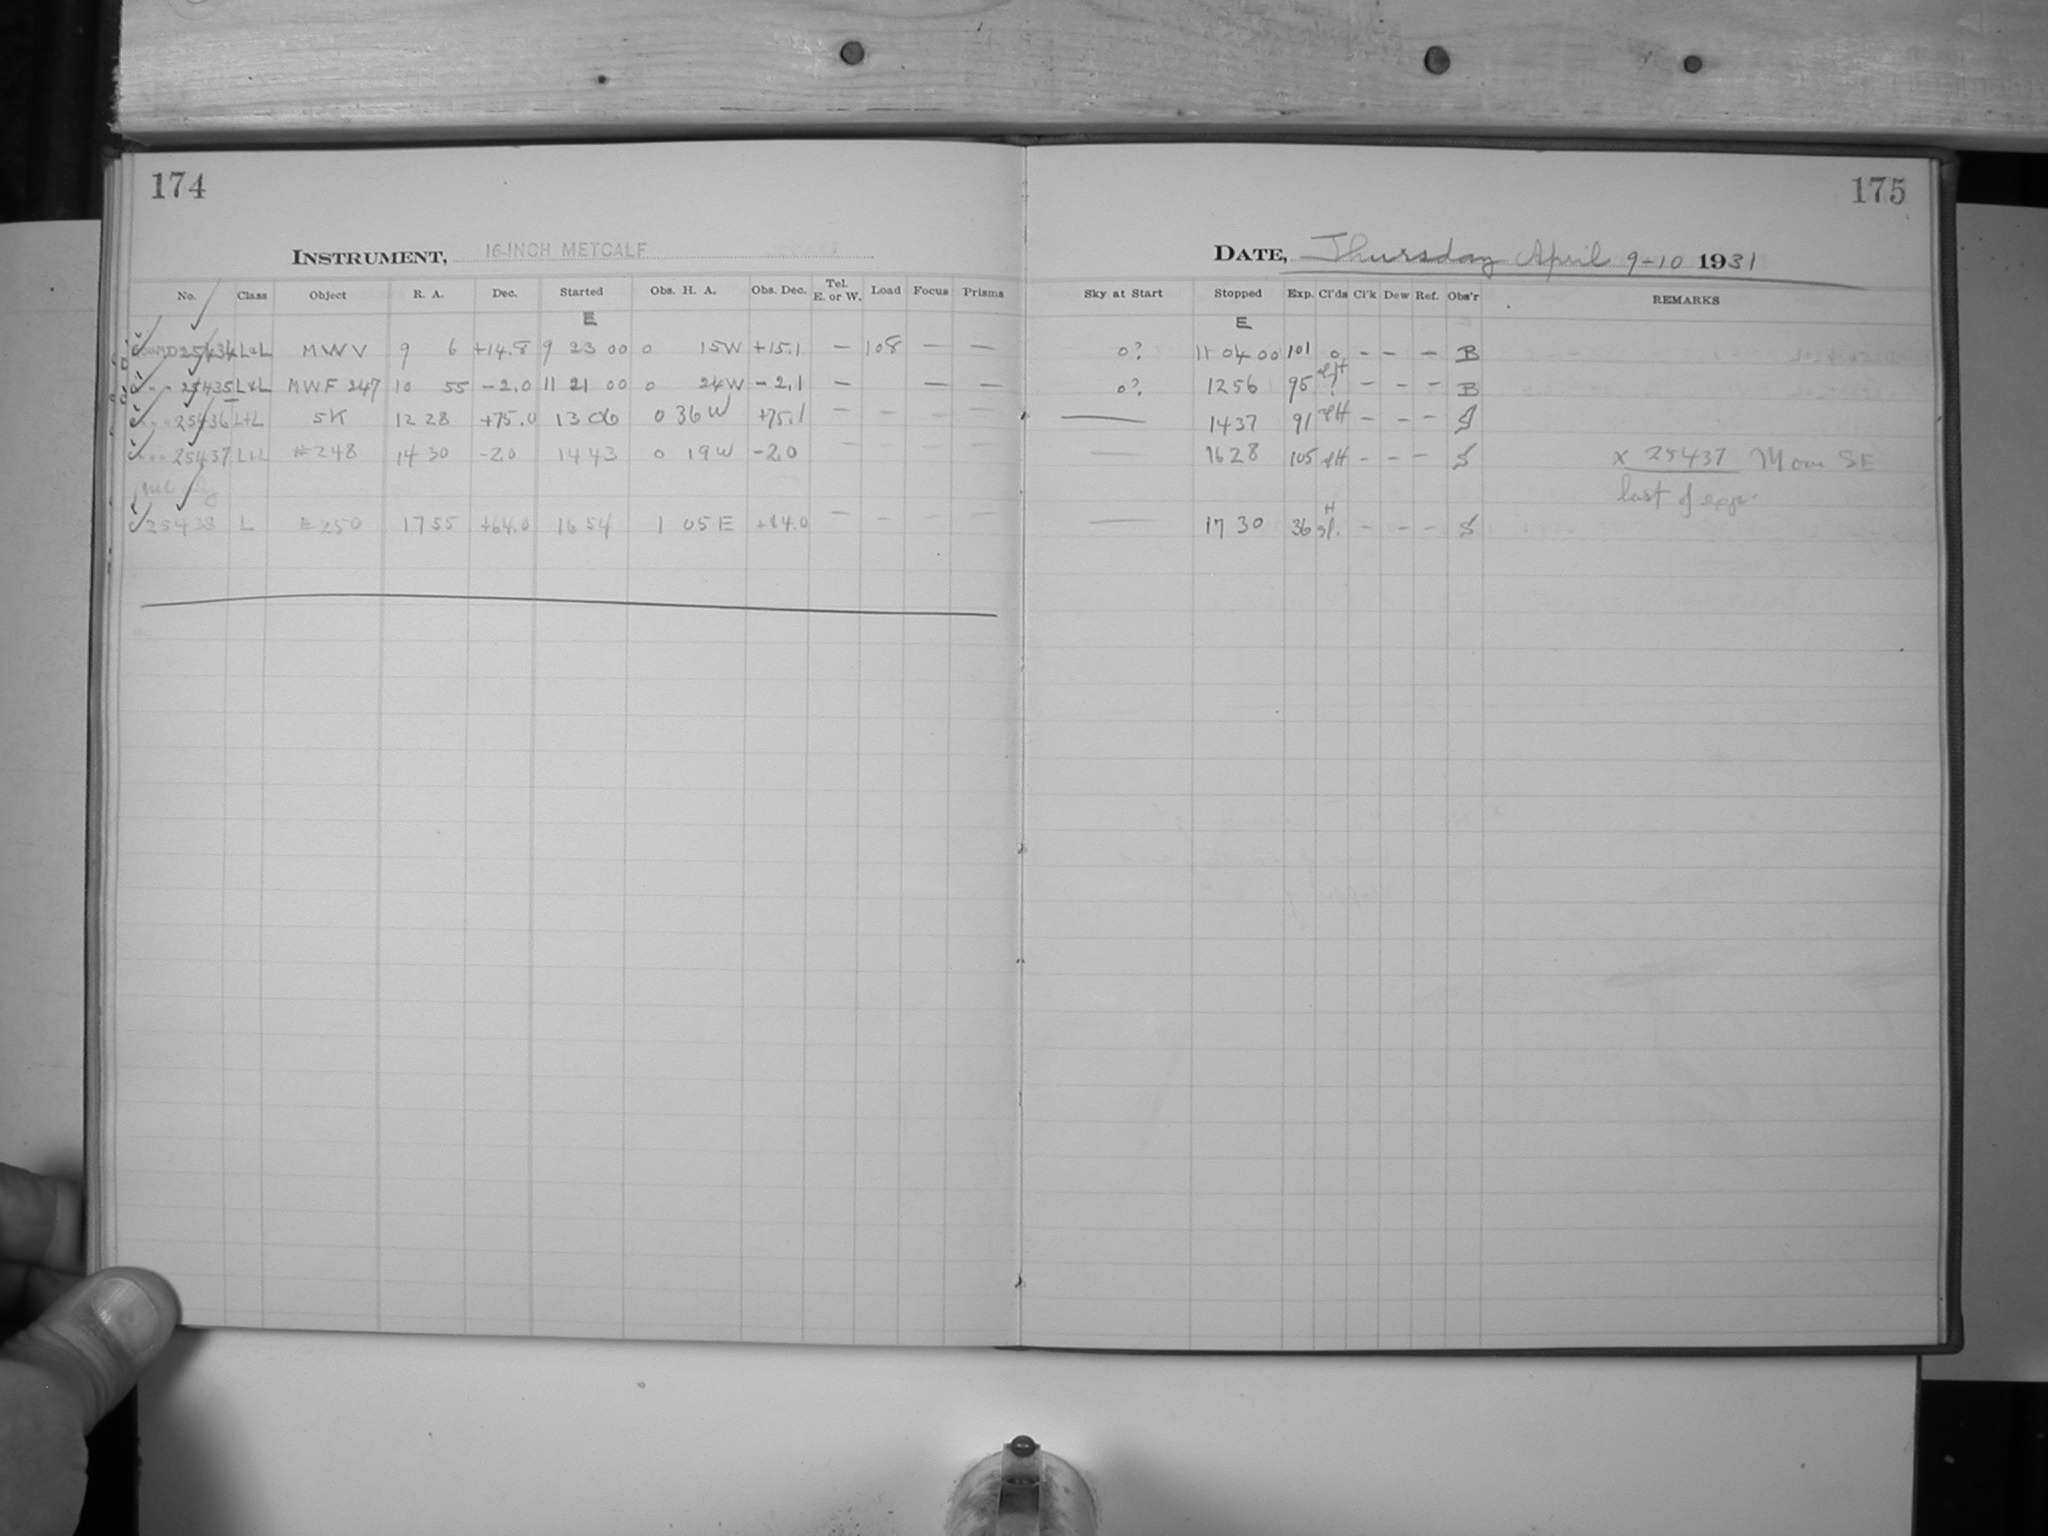 174
INSTRUMENT, 16-INCH METCALF
No. Class Object R. A. Dec. Started Obs. H. A. Obs. Dec. Tel. E. or W. Load Focus Prisms
E
25434 L+L MWV 9 6 +14.8 9 23 00 0 15W +15.1 — 108 — —
" " " 25435 L+L MWF 247 10 55 -2.0 11 21 00 0 24W -2.1 — — —
" " " 25436 L+L SK 12 28 +75.0 13 06 0 36W +75.1 — — — —
" " " 25437 L+L #248 14 30 -2.0 14 43 0 19W -2.0 — — —
25438 L #250 17 55 +64.0 16 54 1 05E +64.0 — — — —
175
DATE, Thursday April 9-10 1931
Sky at Start Stopped Exp. Cl'ds Cl'k Dew Ref. Obs'r REMARKS
E
0? 11 04 00 101 0 — — — B
0? 12 56 95 — — — B
— 14 37 91 — — — S
— 16 28 105 — — — S x 25437 Moon SE
last of expr.
— 17 30 36 H sl. — — — S